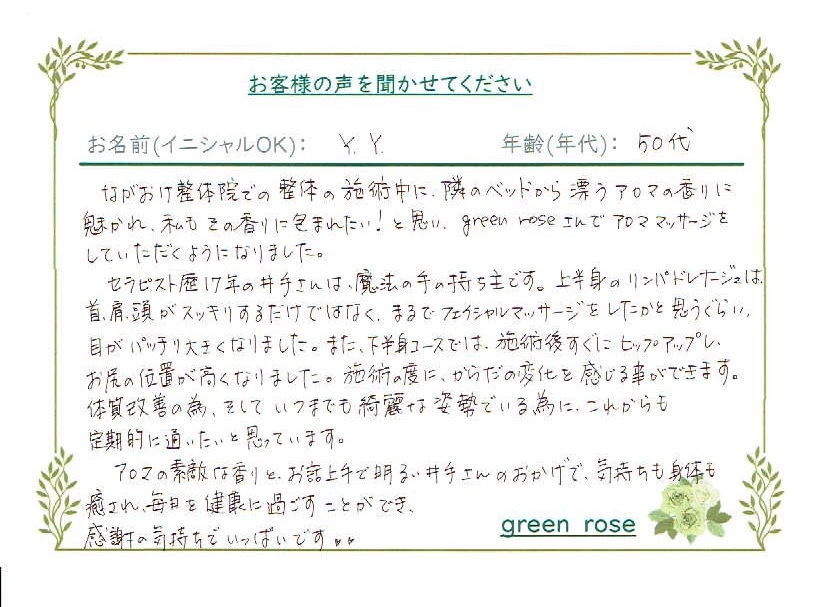 お客様の声を聞かせてください
お名前(イニシャルOK): Y.Y. 年齢(年代): 50代
ながおけ整体院での整体の施術中に、隣のベッドから漂うアロマの香りに
魅かれ、私もその香りに包まれたい!と思い、green roseさんでアロママッサージを
していただくようになりました。
セラピスト歴17年の井手さんは、魔法の手の持ち主です。上半身のリンパドレナージュは、
首、肩、頭がスッキリするだけではなく、まるでフェイシャルマッサージをしたかと思うぐらい、
目がパッチリ大きくなりました。また、下半身コースでは、施術後すぐにヒップアップし、
お尻の位置が高くなりました。施術の度に、からだの変化を感じる事ができます。
体質改善の為、そしていつまでも綺麗な姿勢でいる為に、これからも
定期的に通いたいと思っています。
アロマの素敵な香りと、お話上手で明るい井手さんのおかげで、気持ちも身体も
癒され、毎日を健康に過ごすことができ、
感謝の気持ちでいっぱいです♥♥
green rose